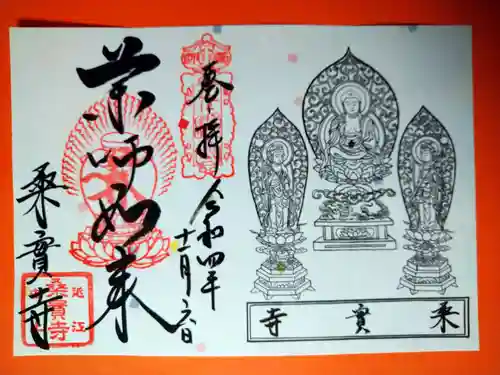 桒實寺
奉拝
令和四年
十一月六日
薬師如来
桒實寺
近江
桑實寺